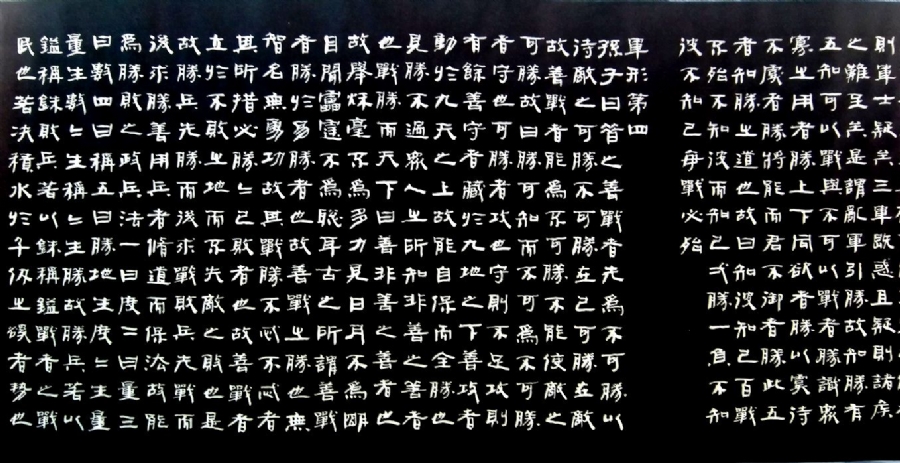 則軍士疑矣三軍既惑且疑則諸侯
之難至矣是謂亂軍引勝故知勝有
五知可以戰與不可以戰者勝識衆
寡之用者勝上下同欲者勝以虞待
不虞者勝將能而君不御者勝此五
者知勝之道也故曰知彼知己百戰
不殆不知彼而知己一勝一負不知
彼不知己每戰必殆
軍形第四
孫子曰昔之善戰者先為不可勝以
待敵之可勝不可勝在己可勝在敵
故善戰者能為不可勝不能使敵之
可勝故曰勝可知而不可為不可勝
者守也可勝者攻也守則不足攻則
有餘善守者藏於九地之下善攻者
動於九天之上故能自保而全勝也
見勝不過衆人之所知非善之善者
也戰勝而天下曰善非善之善者也
故舉秋毫不為多力見日月不為明
目聞雷霆不為聰耳古之所謂善戰
者勝於易勝者也故善戰之勝也無
智名無勇功故其戰勝不忒不忒者
其所措必勝〻已敗者也故善戰者
立於不敗之地而不失敵之敗也是
故勝兵先勝而後求戰敗兵先戰而
後求勝善用兵者脩道而保法故能
為勝敗之政兵法一曰度二曰量三
曰數四曰稱五曰勝地生度〻生量
量生數〻生稱〻生勝故勝兵若以
鎰稱銖敗兵若以銖稱鎰戰者之戰
民也若決積水於千仞之谿者勢也